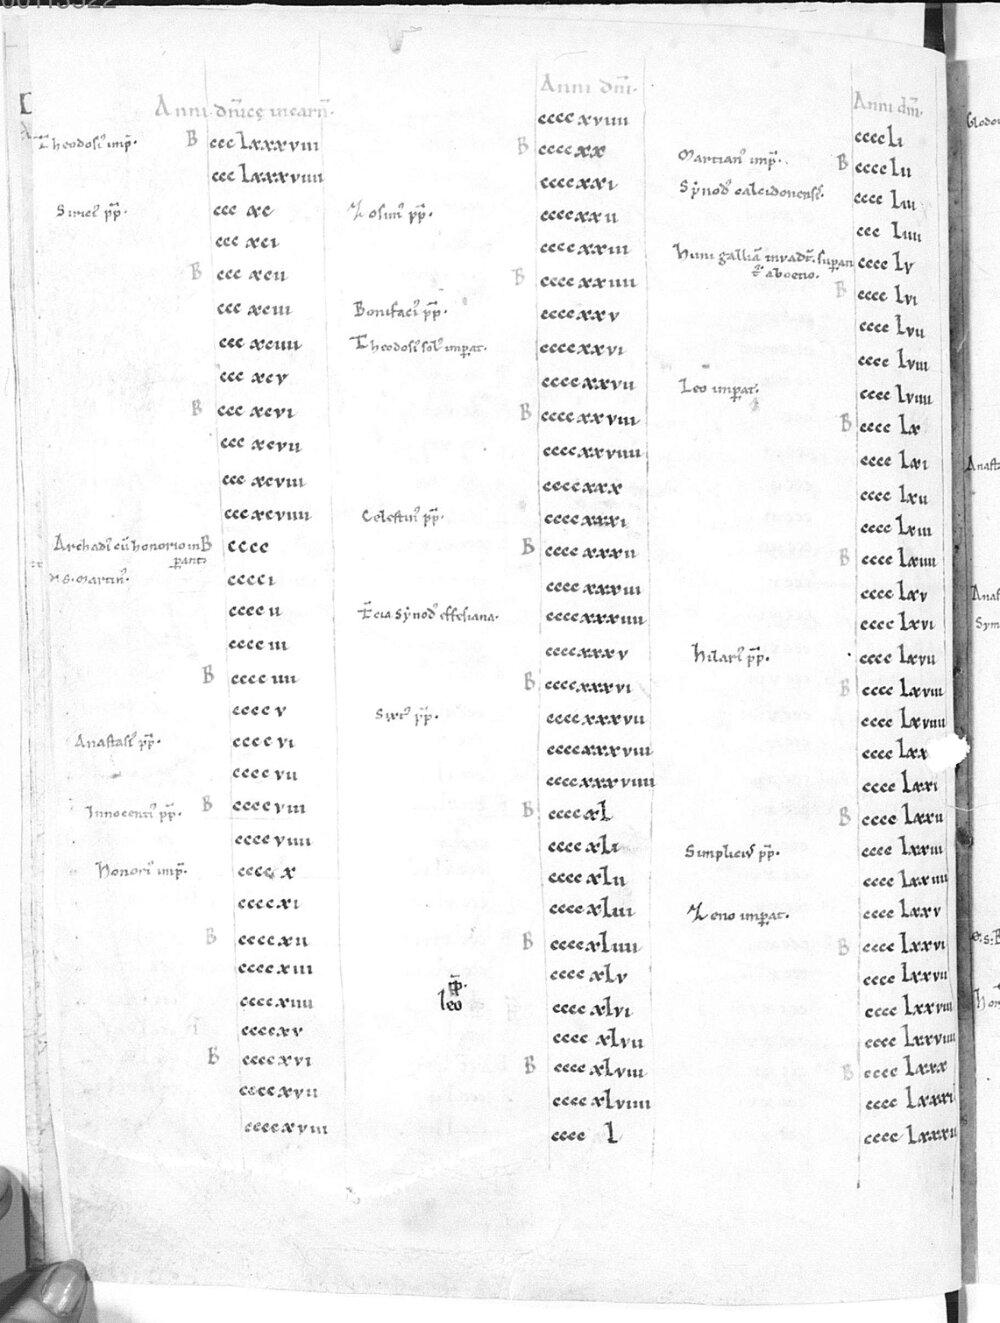 Anni dn̄icę incarn̄.
Theodosi' imp̄. B ccc lxxxviii
ccc lxxxviiii
Sirici' pp̄. ccc xc
ccc xci
B ccc xcii
ccc xciii
ccc xciiii
ccc xcv
B ccc xcvi
ccc xcvii
ccc xcviii
ccc xcviiii
Archadi' cū honorio in B cccc
perant
S. martin'. cccci
cccc ii
cccc iii
B cccc iiii
cccc v
Anastasi' pp̄. cccc vi
cccc vii
Innocenti' pp̄. B cccc viii
cccc viiii
honori' imp̄. cccc x
cccc xi
B cccc xii
cccc xiii
cccc xiiii
cccc xv
B cccc xvi
cccc xvii
cccc xviii
Anni dn̄i.
cccc xviiii
B cccc xx
cccc xxi
Zosim' pp̄. cccc xxii
cccc xxiii
B cccc xxiiii
Bonifaci' pp̄. cccc xxv
Theodosi' sol' imperat. cccc xxvi
cccc xxvii
B cccc xxviii
cccc xxviiii
cccc xxx
Celestin' pp̄. cccc xxxi
B cccc xxxii
cccc xxxiii
T̄cia synod' effesiana. cccc xxxiiii
cccc xxxv
B cccc xxxvi
Sixt' pp̄. cccc xxxvii
cccc xxxviii
cccc xxxviiii
B cccc xl
cccc xli
cccc xlii
cccc xliii
B cccc xliiii
pp̄.
leo cccc xlv
cccc xlvi
cccc xlvii
B cccc xlviii
cccc xlviiii
cccc l
Anni dn̄i.
cccc li
Martian' imp̄. B cccc lii
Synod' calcidonensis. cccc liii
ccc liiii
huni galliā invadt. superan cccc lv
t' ab oetio.
B cccc lvi
cccc lvii
cccc lviii
Leo imperat. cccc lviiii
B cccc lx
cccc lxi
cccc lxii
cccc lxiii
B cccc lxiiii
cccc lxv
cccc lxvi
hilari' pp̄. cccc lxvii
B cccc lxviii
cccc lxviiii
cccc lxx
cccc lxxi
B cccc lxxii
Simplici' pp̄. cccc lxxiii
cccc lxxiiii
Zeno imperat. cccc lxxv
B cccc lxxvi
cccc lxxvii
cccc lxxviii
cccc lxxviiii
B cccc lxxx
cccc lxxxi
cccc lxxxii